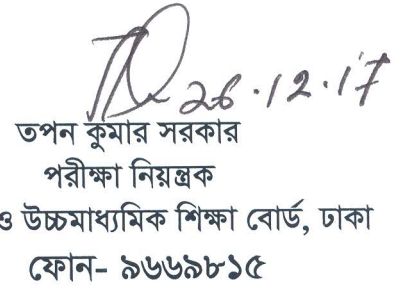 26.12.17
তপন কুমার সরকার
পরীক্ষা নিয়ন্ত্রক
ও উচ্চমাধ্যমিক শিক্ষা বোর্ড, ঢাকা
ফোন- ৯৬৬৯৮১৫